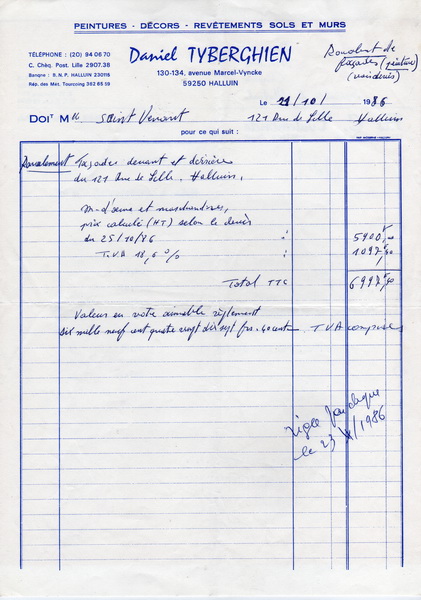 PEINTURES - DÉCORS - REVÊTEMENTS SOLS ET MURS
TÉLÉPHONE : (20) 94 06 70
C. Chèq. Post. Lille 2907.38
Banque : B. N. P. HALLUIN 230116
Rép. des Mét. Tourcoing 362 65 59
Daniel TYBERGHIEN
130-134, avenue Marcel-Vyncke
59250 HALLUIN
Ravalement de
façades (peinture)
Le 21/10/ 1986
DOIT Mr Saint Venant 121 Rue de Lille Halluin
pour ce qui suit :
Ravalement Façades devant et derrière
du 121 Rue de Lille. Halluin.
M. d'œuvre et marchandises,
prix calculé (HT) selon le devis
du 25/10/86 " 5900,00
T.V.A 18,60 % " 1097,40
Total TTC 6997,40
Valeur en votre aimable règlement
six mille neuf cent quatre vingt dix sept frs. 40 cent T.V.A comprise
le 23 /1986